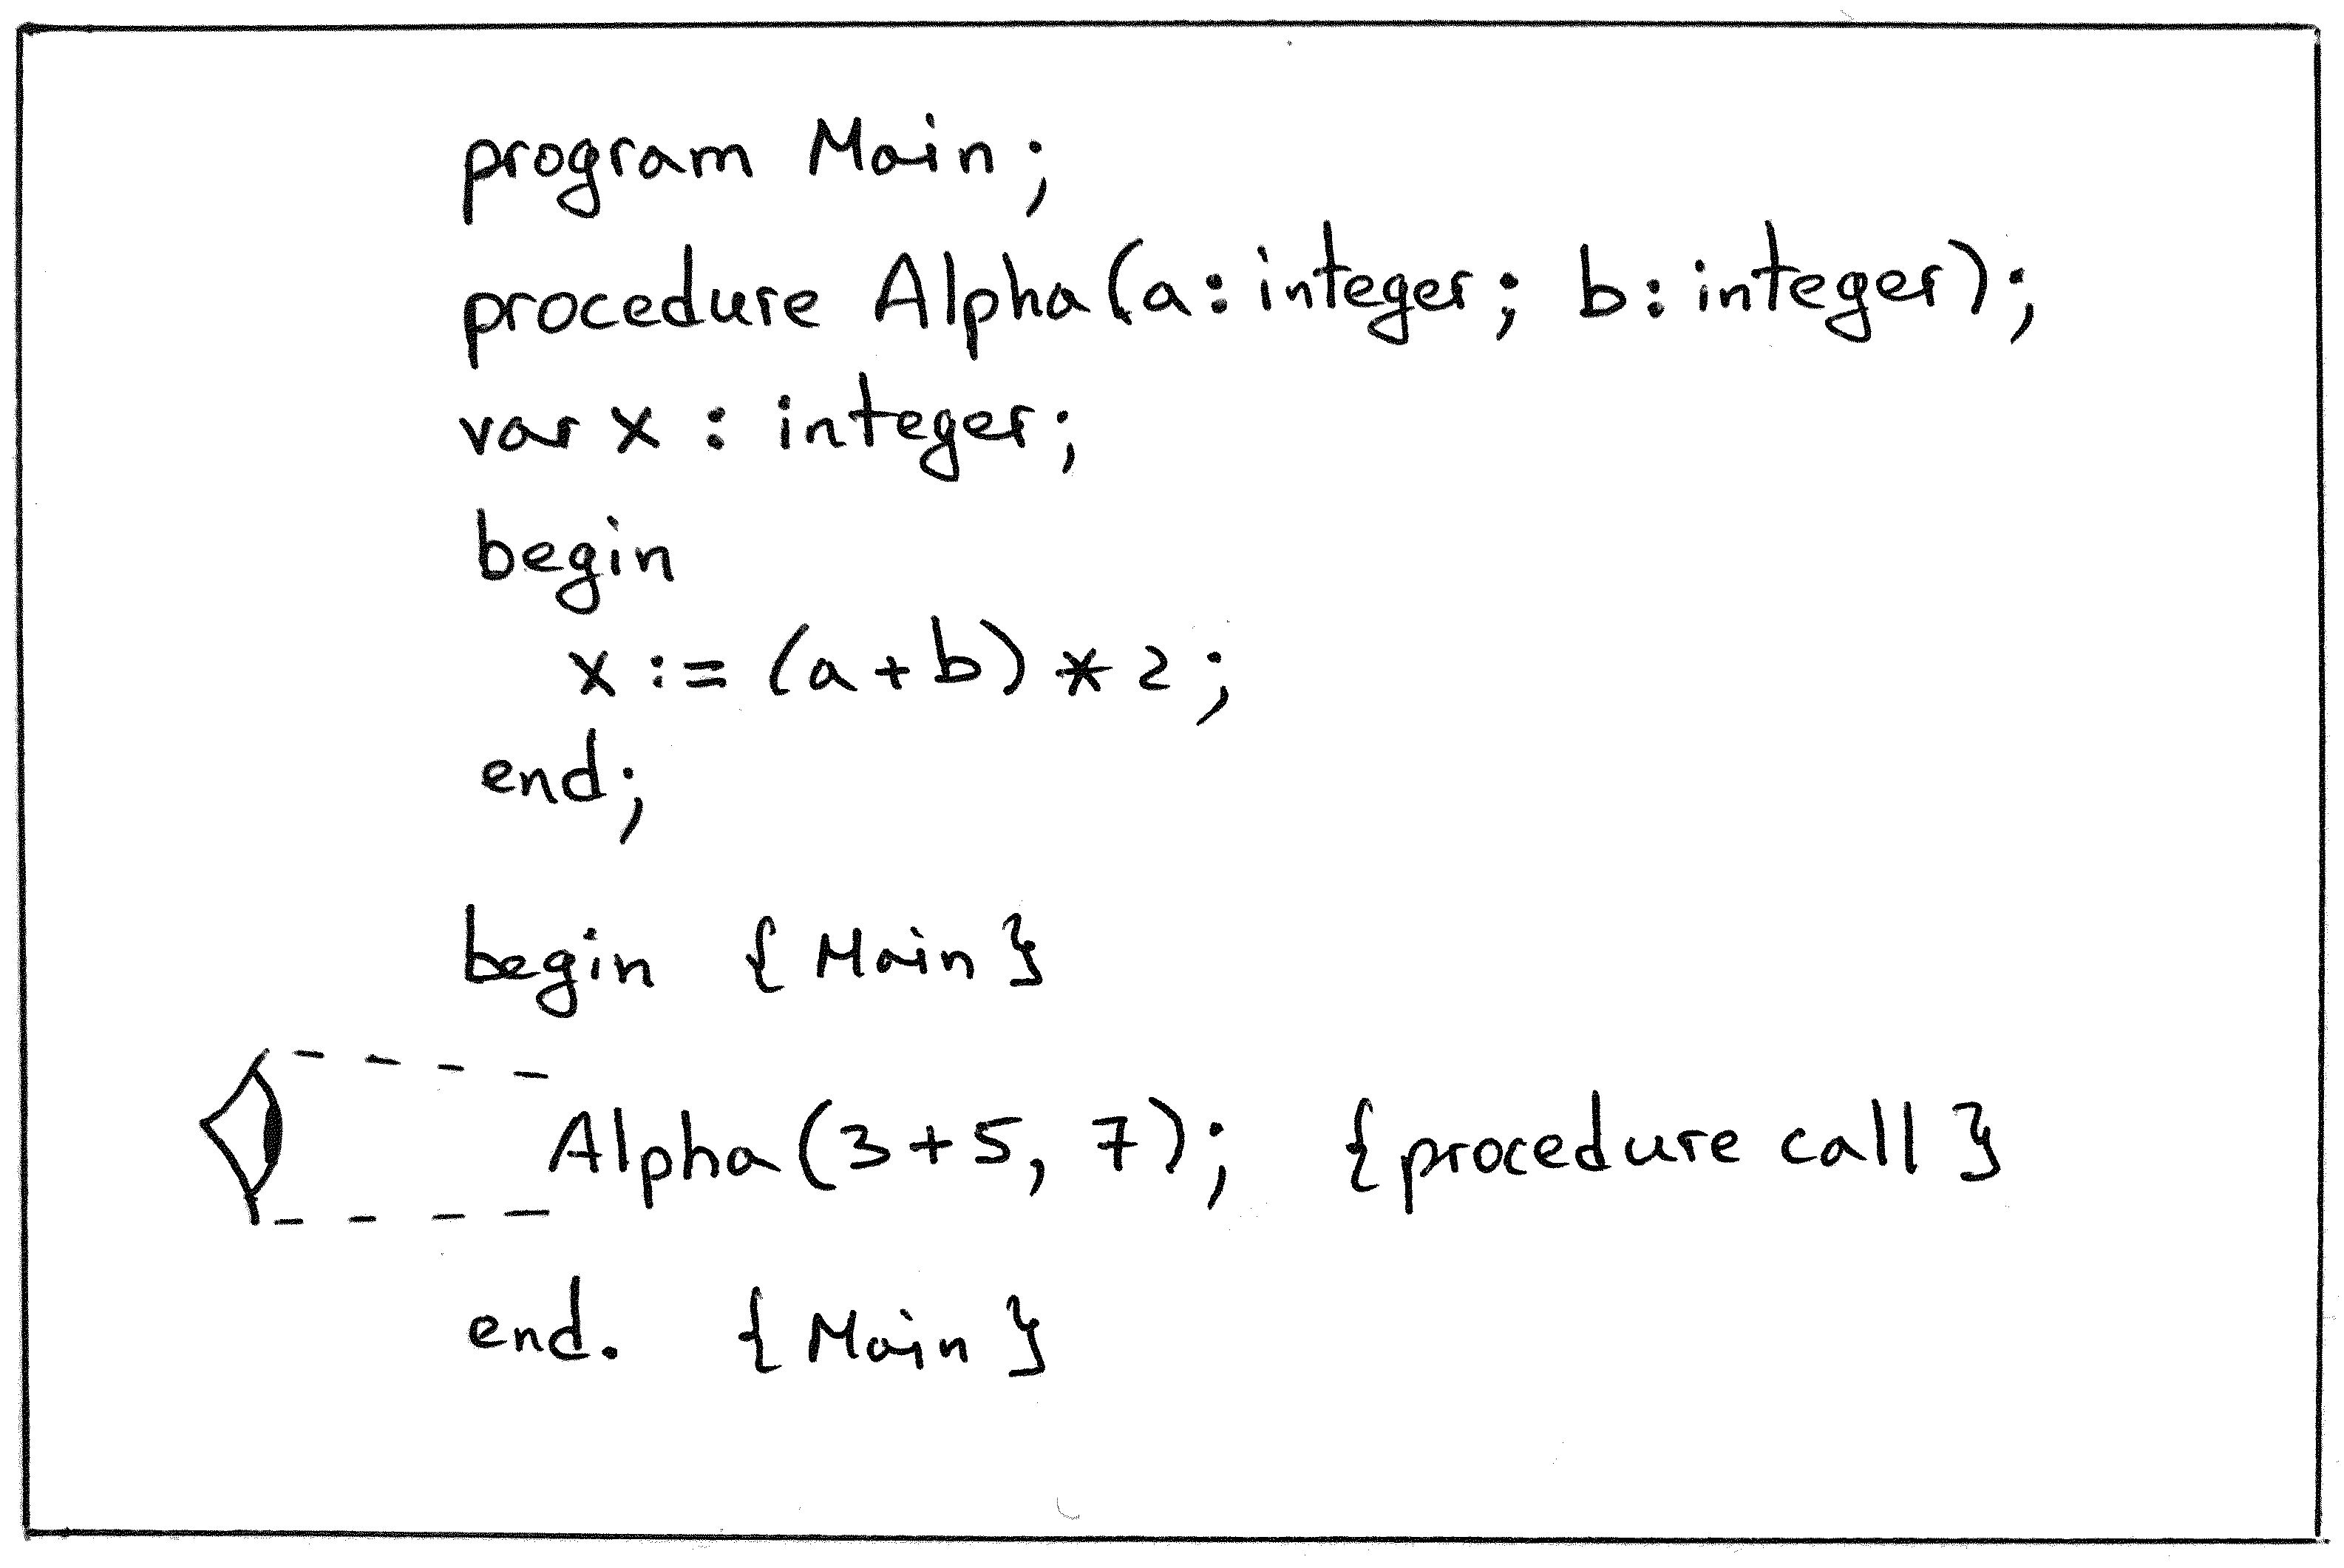 program Main;
procedure Alpha(a: integer; b: integer);
var x : integer;
begin
x := (a + b) * 2;
end;
begin { Main }
Alpha(3+5, 7); {procedure call}
end. { Main }